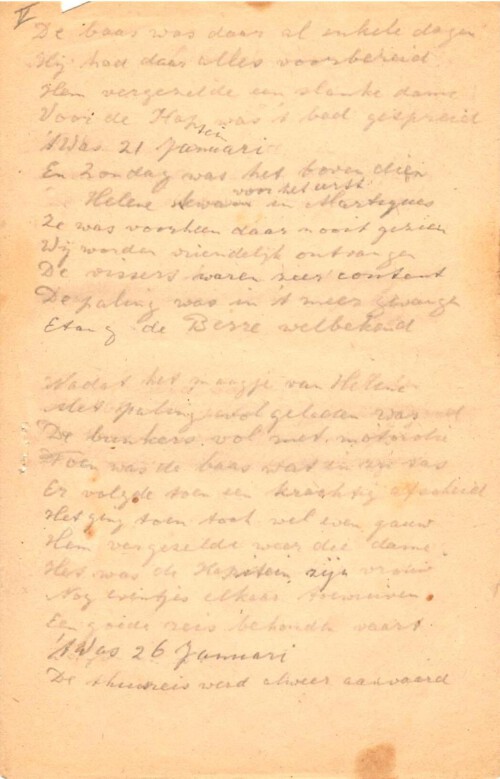 V
De baas was daar al enkele dagen
Hij had daar alles voorbereid
Hem vergezelde een slanke dame
Voor de Kapitein was 't bed gespreid
't Was 21 Januari
En Zondag was het bovendien
Helene kwam voor het eerst in Martigues
Ze was voorheen daar nooit gezien
Wij worden vriendelijk ontvangen
De vissers waren zeer content
De paling was in 't meer gevangen
Etang de Berre welbekend
Nadat het maagje van Helene
Met paling vol geladen was
De bunkers vol met motorolie
Toen was de baas wat in zijn sas
Er volgde toen een krachtig afscheid
Het ging toen toch wel even gauw
Hem vergezelde weer die dame
Het was de Kapitein zijn vrouw
Nog eventjes elkaar toewuiven
Een goede reis behouden vaart
't Was 26 Januari
De thuisreis werd alweer aanvaard